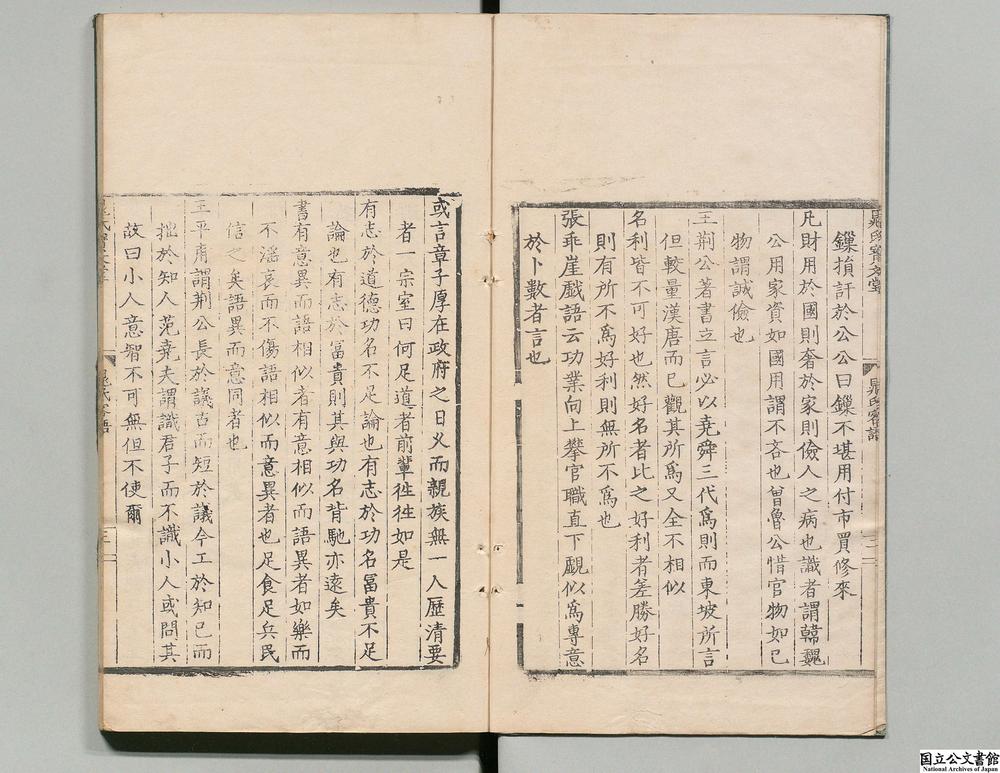 晁氏寶文堂
晁氏客語
二
鏁損訐於公公曰鏁不堪用付市買修來
凡財用於國則奢於家則儉人之病也識者謂韓魏
公用家資如國用謂不吝也曾魯公惜官物如已
物謂誠儉也
王荊公著書立言必以堯舜三代爲則而東坡所言
但較量漢唐而已觀其所爲又全不相似
名利皆不可好也然好名者比之好利者差勝好名
則有所不爲好利則無所不爲也
張乖崖戲語云功業向上攀官職直下覷似爲專意
於卜數者言也
或言章子厚在政府之日久而親族無一人歷清要
者一宗室曰何足道者前輩徃徃如是
有志於道德功名不足論也有志於功名冨貴不足
論也有志於冨貴則其與功名背馳亦遠矣
書有意異而語相似者有意相似而語異者如樂而
不滛哀而不傷語相似而意異者也足食足兵民
信之矣語異而意同者也
王平甫謂荊公長於議古而短於議今工於知已而
拙於知人范堯夫謂識君子而不識小人或問其
故曰小人意智不可無但不使爾
晁氏寶文堂
晁氏客語
三
国立公文書館
National Archives of Japan